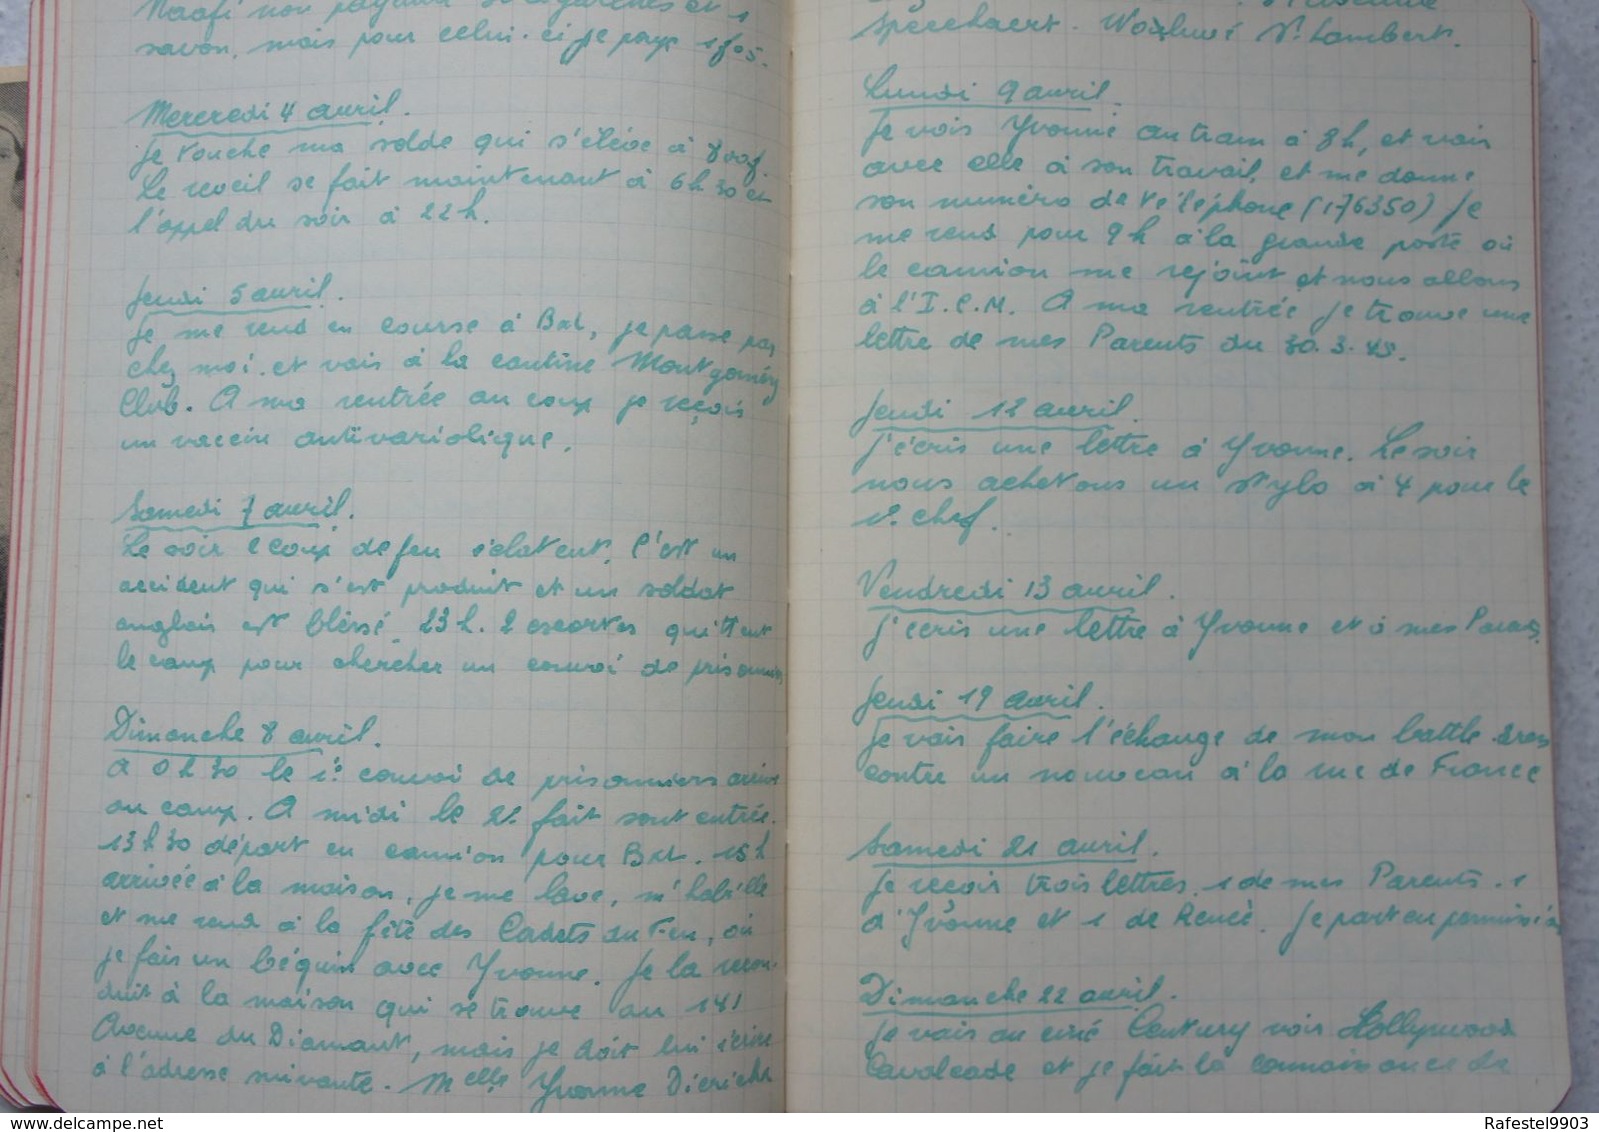 savon, mais pour celui-ci je paye 1f05.
Mercredi 4 avril.
Je touche ma solde qui s'élève à 800f.
Le reveil se fait maintenant à 6h30 et
l'appel du soir à 22h.
Jeudi 5 avril.
Je me rend en course à Bxl, je passe par
chez moi et vais à la cantine Montgoméry
Club. A ma rentrée au camp je reçois
un vaccin antivariolique.
Samedi 7 avril.
Le soir coup de feu éclatent, C'est un
accident qui s'est produit et un soldat
anglais est blèssé. 23h. 2 escortes quittent
le camp pour chercher un convoi de prisonniers
Dimanche 8 avril.
A 0h30 le 1° convoi de prisonniers arrive
au camp. A midi le 2° fait sont entrée.
13h30 départ en camion pour Bxl. 15h
arrivée à la maison, je me lave, m'habille
et me rend à la fête des Cadets du Feu, où
je fais un béguin avec Yvonne. Je la recon-
duit à la maison qui se trouve au 141
Avenue du Diamant, mais je doit lui écrire
à l'adresse suivante. Melle Yvonne Diericke
Speeckaert. Woluwé St. Lambert.
Lundi 9 avril.
Je vois Yvonne au tram à 8h, et vais
avec elle à son travail, et me donne
son numéro de téléphone (176350) Je
me rend pour 9h à la grande poste où
le camion me rejoint et nous allons
à l'I.C.M. A ma rentrée je trouve une
lettre de mes Parents du 30.3.45.
Jeudi 12 avril.
J'écris une lettre à Yvonne. Le soir
nous achetons un stylo à 4 pour le
1°. chef.
Vendredi 13 avril.
J'écris une lettre à Yvonne et à mes Parents.
Jeudi 19 avril.
Je vais faire l'échange de mon battle dress
contre un nouveau à la rue de France
Samedi 21 avril.
Je reçois trois lettres, 1 de mes Parents. 1
d'Yvonne et 1 de Renée. Je part en permission
Dimanche 22 avril.
Je vais au ciné Century voir Hollywood
Cavalcade et je fait la connaissance de
Rafestel9903